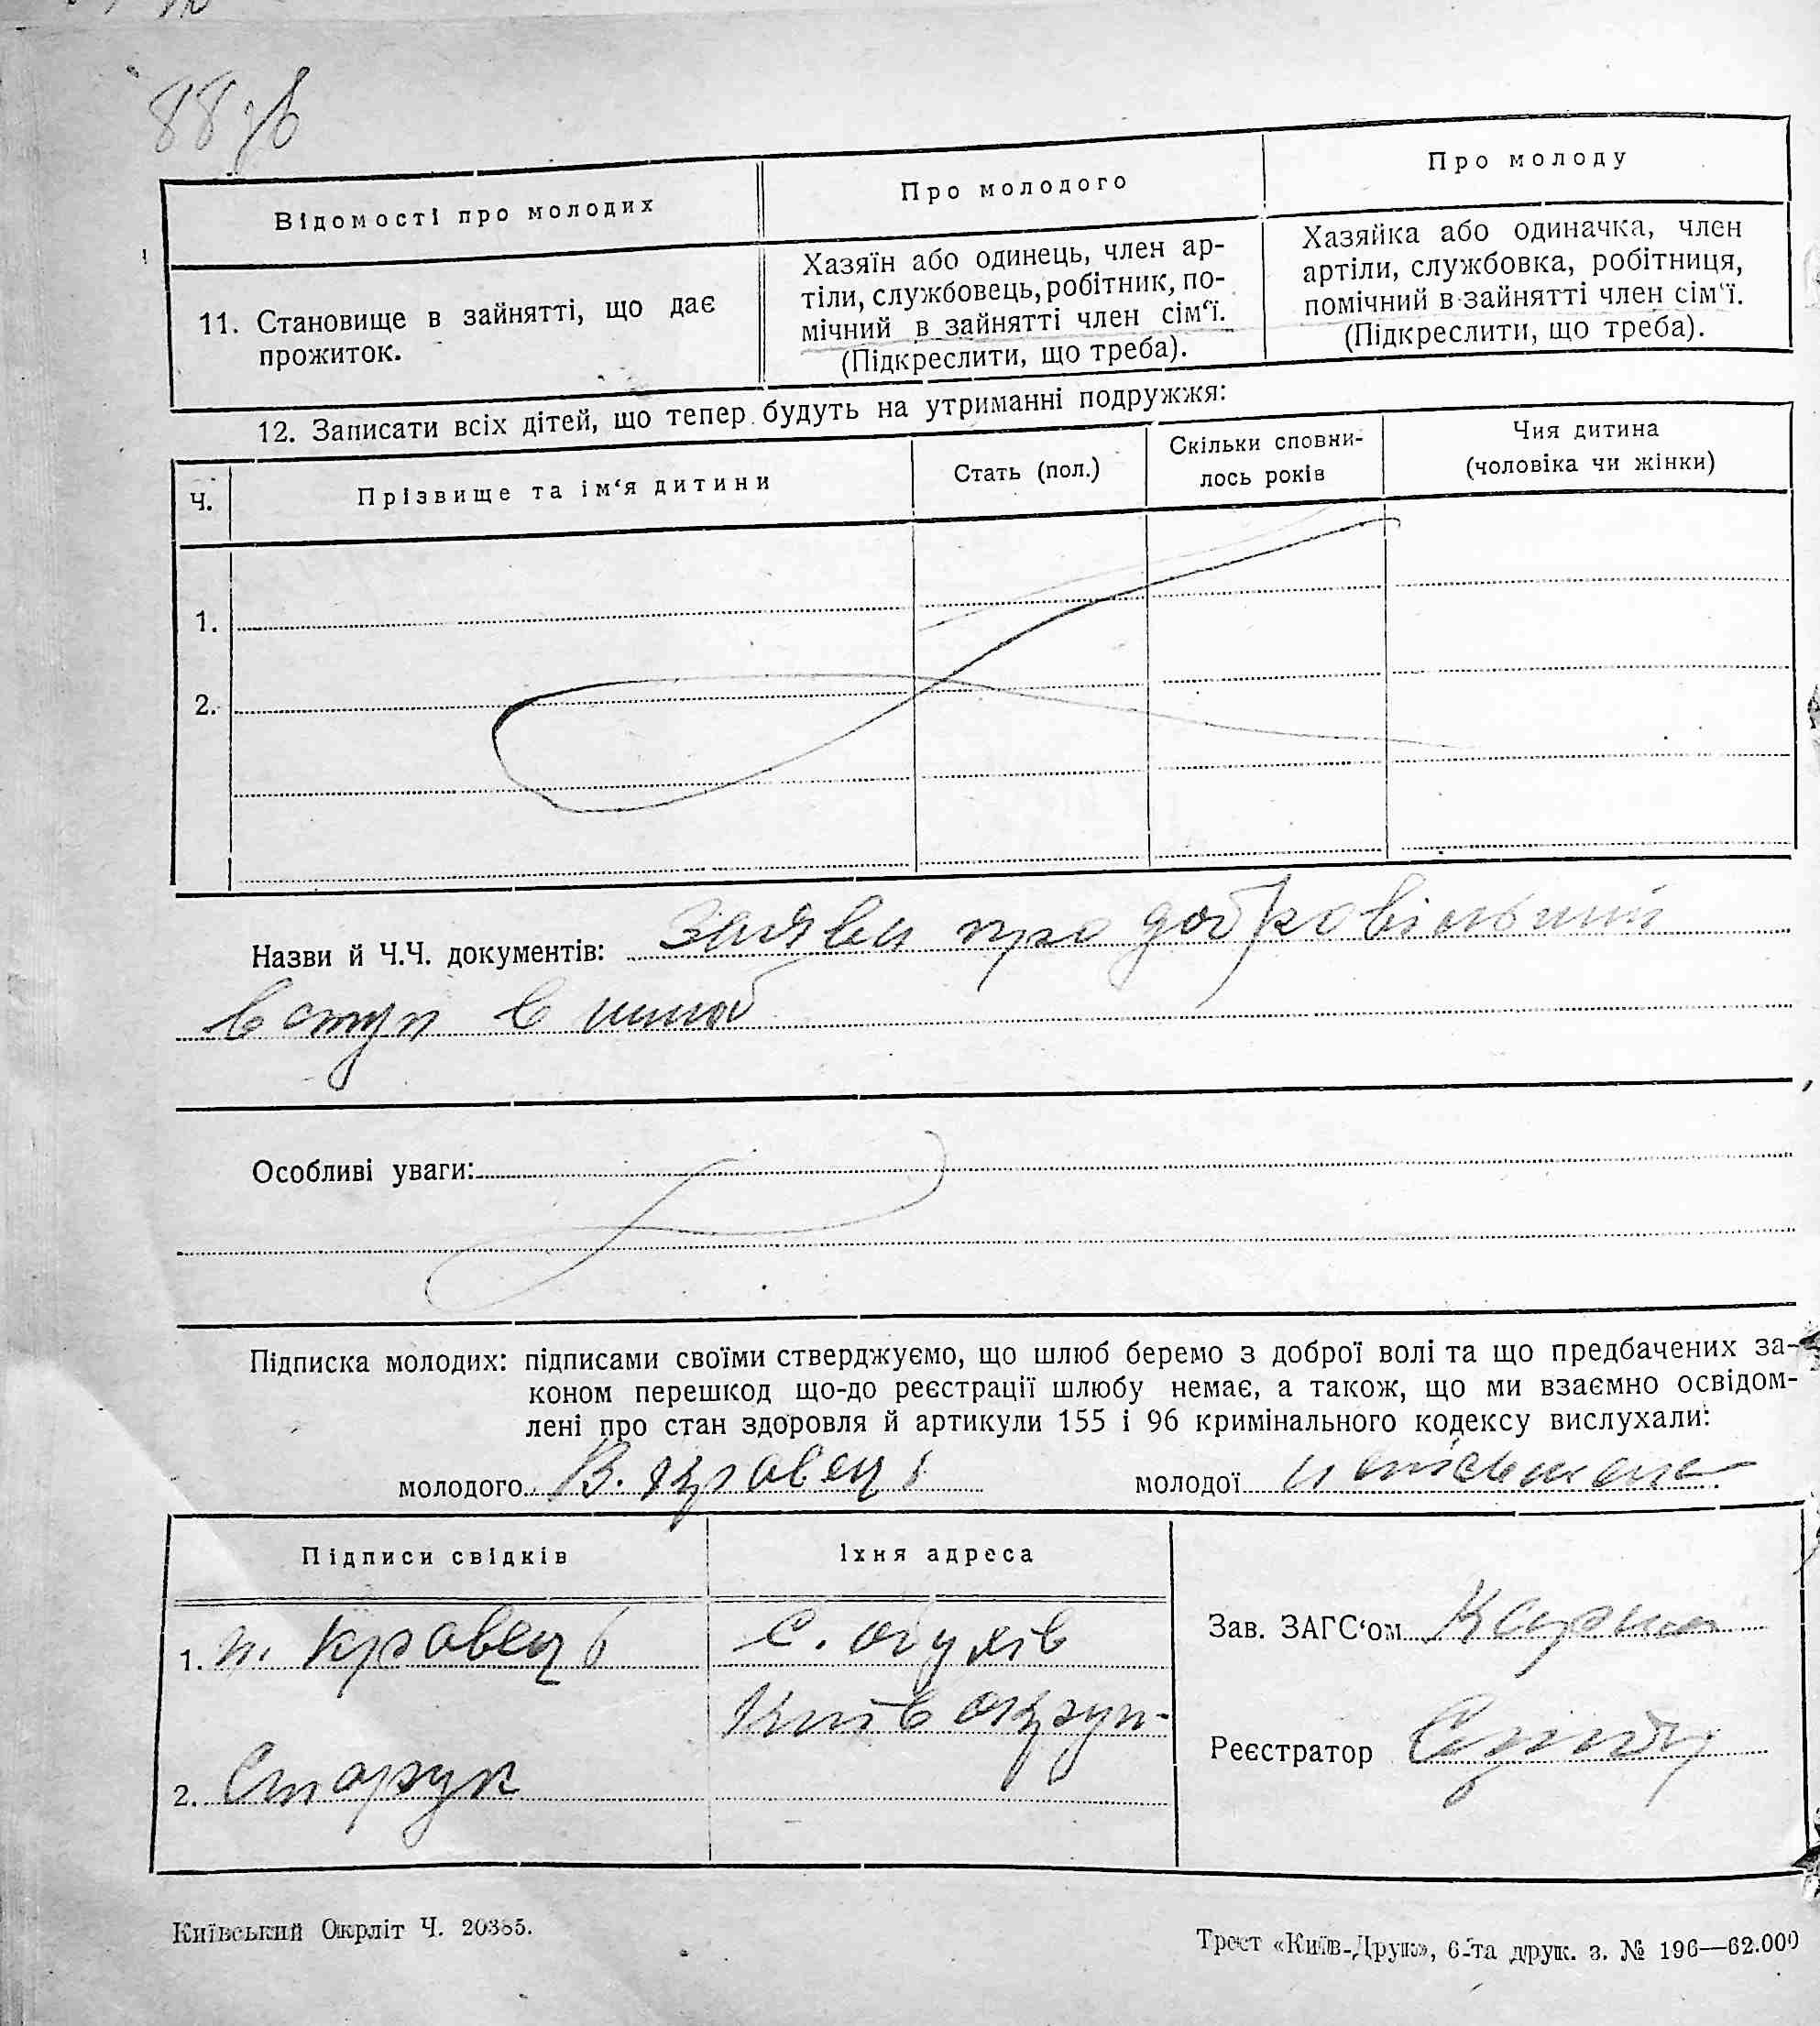 88 зв
Відомості про молодих
Про молодого
Про молоду
11. Становище в зайнятті, що дає
прожиток.
Хазяїн або одинець, член ар-
тіли, службовець, робітник, по-
мічний в зайнятті член сім‘ї.
(Підкреслити, що треба).
Хазяйка або одиначка, член
артіли, службовка, робітниця,
помічний в зайнятті член сім‘ї.
(Підкреслити, що треба).
12. Записати всіх дітей, що тепер будуть на утриманні подружжя:
Ч.
Прізвище та ім‘я дитини
Стать (пол.)
Скільки сповни-
лось років
Чия дитина
(чоловіка чи жінки)
1.
2.
Назви й Ч.Ч. документів: заява про добровільний
вступ в шлюб
Особливі уваги:
Підписка молодих: підписами своїми стверджуємо, що шлюб беремо з доброї волі та що предбачених за-
коном перешкод що-до реєстрації шлюбу немає, а також, що ми взаємно освідом-
лені про стан здоровля й артикули 155 і 96 кримінального кодексу вислухали:
молодого В. Кравець молодої
Підписи свідків
Їхня адреса
1. п. Кравець
с.
Київ округи
2. Старук
Зав. ЗАГС‘ом
Реєстратор
Київський Окрліт Ч. 20385.
Трест «Київ-Друк», 6-та друк. з. № 196—62.000